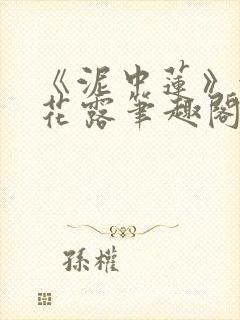 《泥中蓮》
花露筆趣閣
孫權